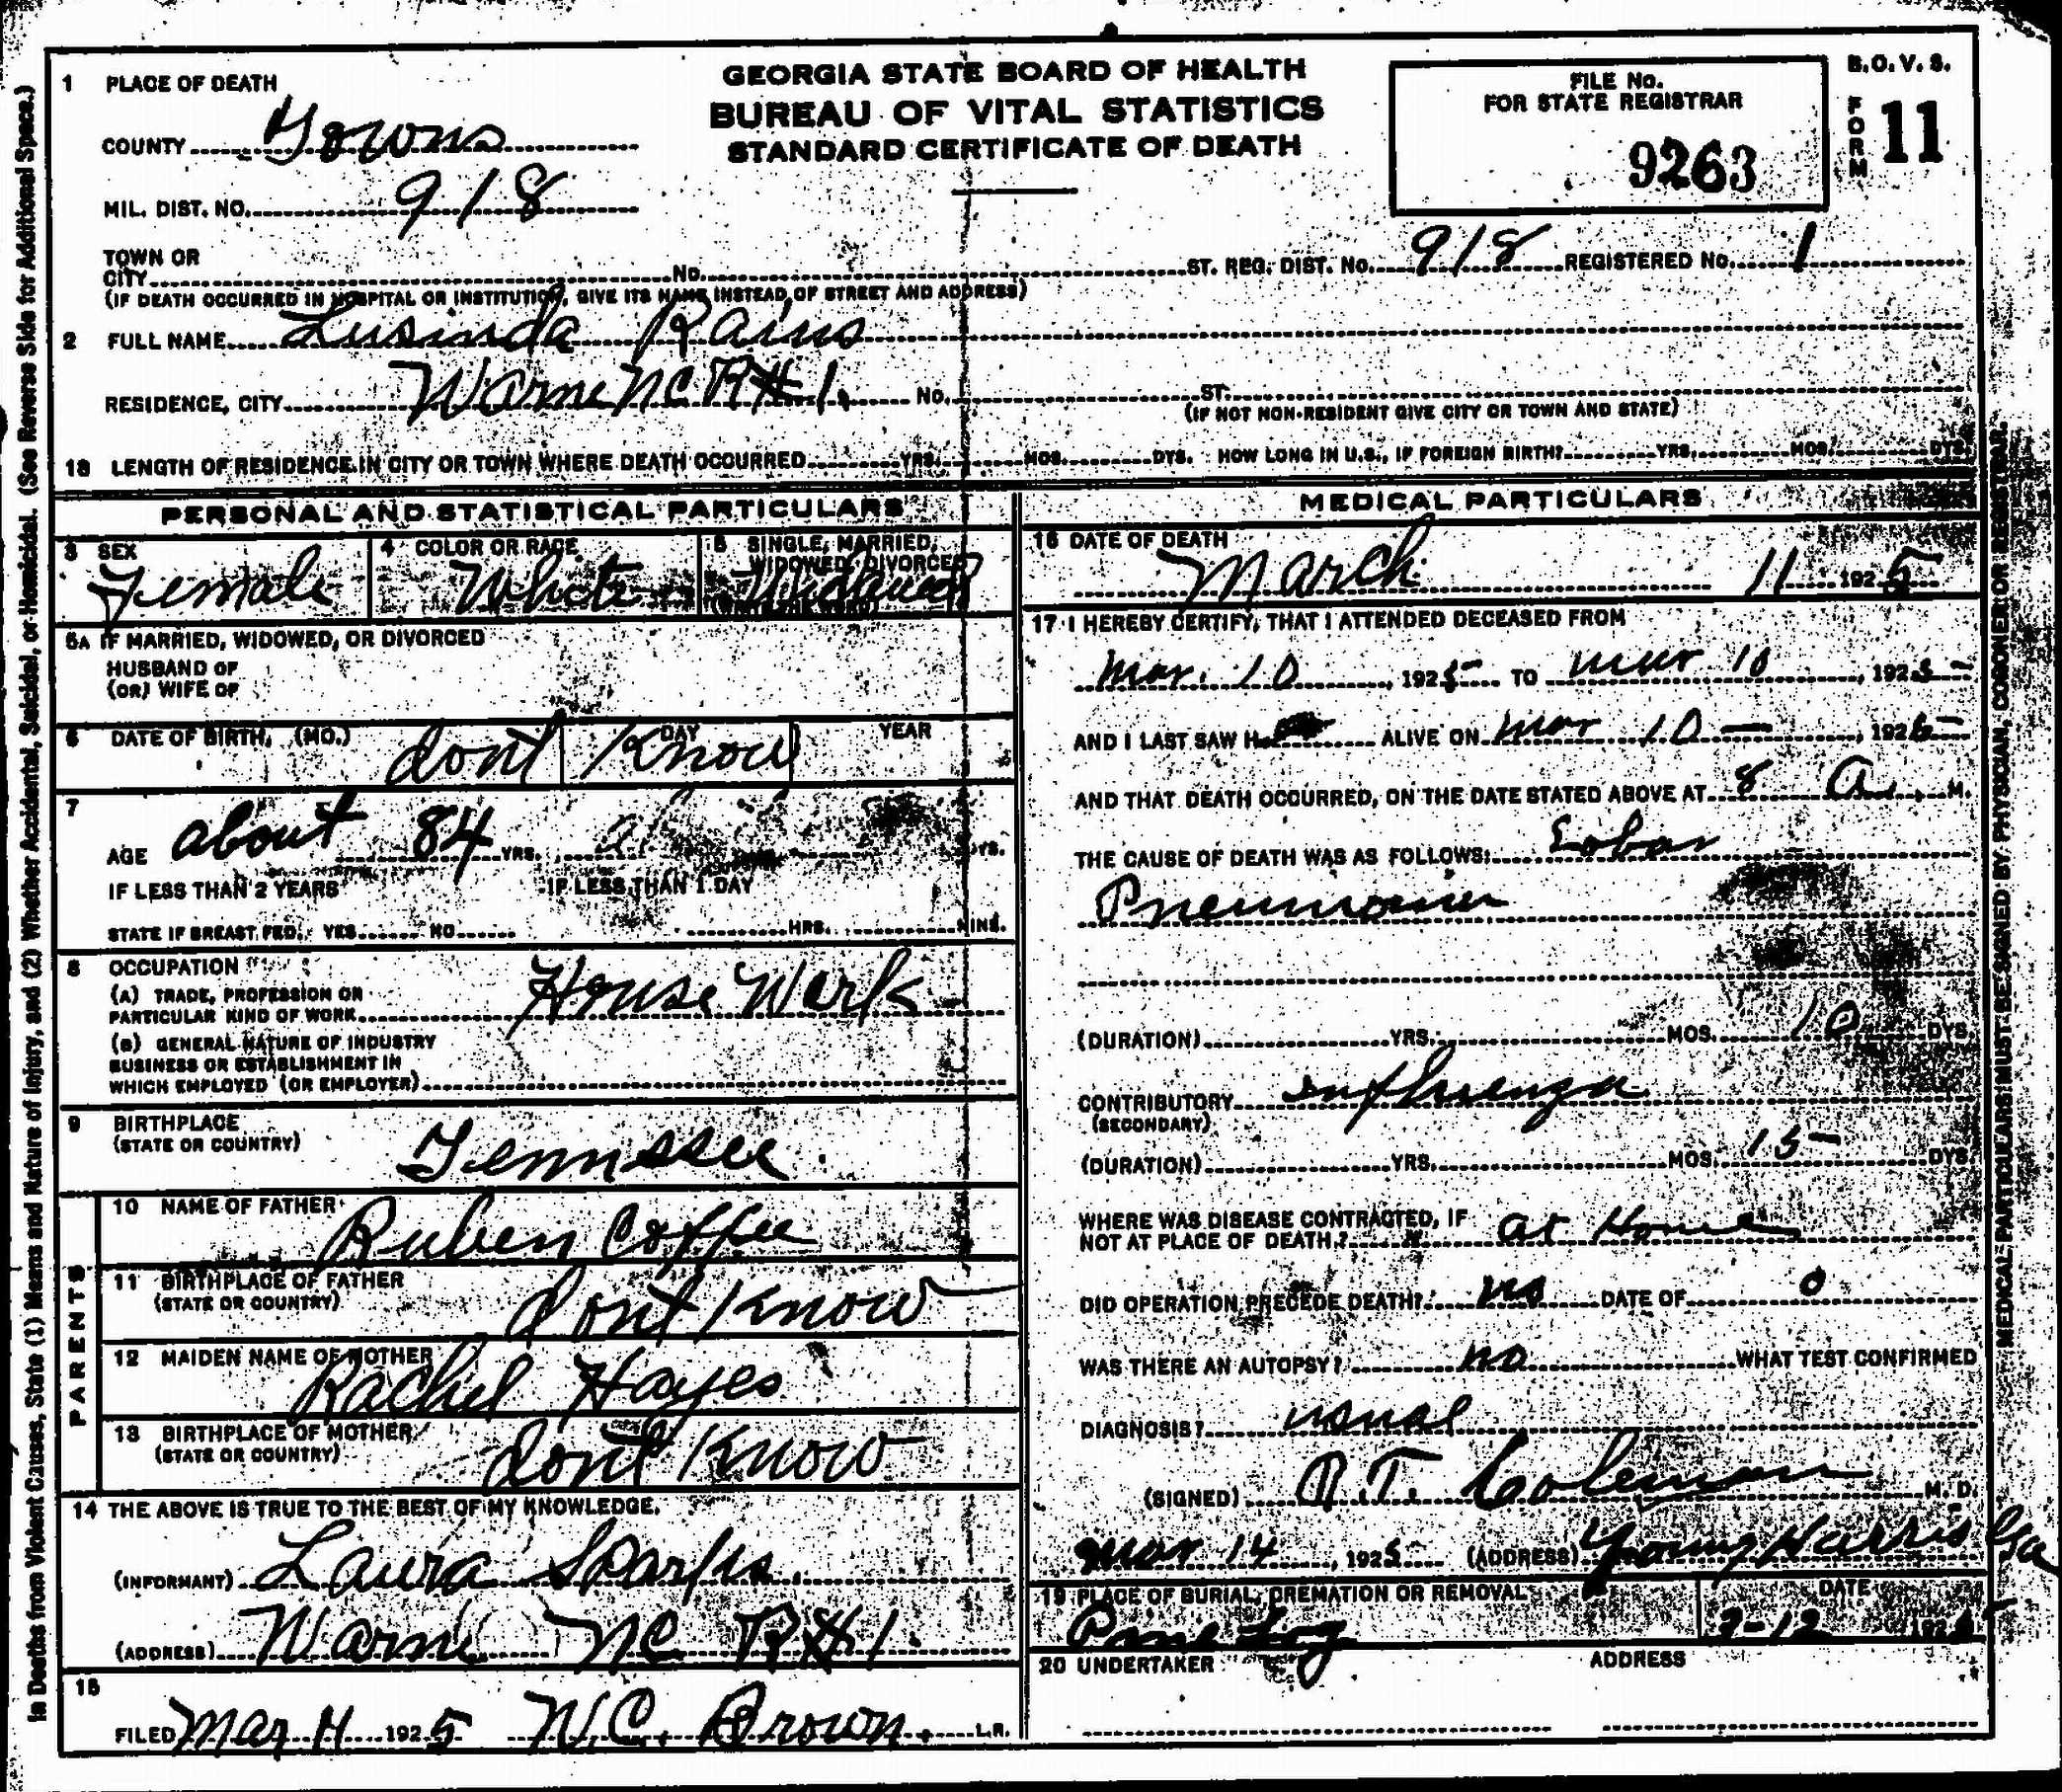 GEORGIA STATE BOARD OF HEALTH
BUREAU OF VITAL STATISTICS
STANDARD CERTIFICATE OF DEATH
FILE No.
FOR STATE REGISTRAR
9263
B.O.V.S.
FORM 11
1 PLACE OF DEATH
COUNTY Towns
MIL. DIST. NO. 918
TOWN OR
CITY No. ST. REG. DIST. No. 918 REGISTERED No. 1
(IF DEATH OCCURRED IN HOSPITAL OR INSTITUTION, GIVE ITS NAME INSTEAD OF STREET AND ADDRESS)
2 FULL NAME Lusinda Rains
RESIDENCE, CITY Warne NC R# 1. No. ST.
(IF NOT NON-RESIDENT GIVE CITY OR TOWN AND STATE)
18 LENGTH OF RESIDENCE IN CITY OR TOWN WHERE DEATH OCCURRED YRS. MOS. DYS. HOW LONG IN U.S., IF FOREIGN BIRTH? YRS. MOS. DYS.
PERSONAL AND STATISTICAL PARTICULARS
3 SEX
Female
4 COLOR OR RACE
White
5 SINGLE, MARRIED,
WIDOWED, DIVORCED
Widowed
5A IF MARRIED, WIDOWED, OR DIVORCED
HUSBAND OF
(OR) WIFE OF
6 DATE OF BIRTH, (MO.) DAY YEAR
dont Know
7
AGE about 84 YRS. DYS.
IF LESS THAN 2 YEARS IF LESS THAN 1 DAY
STATE IF BREAST FED. YES NO HRS. MINS.
8 OCCUPATION
(A) TRADE, PROFESSION OR
PARTICULAR KIND OF WORK House Wark
(B) GENERAL NATURE OF INDUSTRY
BUSINESS OR ESTABLISHMENT IN
WHICH EMPLOYED (OR EMPLOYER)
9 BIRTHPLACE
(STATE OR COUNTRY) Tennssee
PARENTS
10 NAME OF FATHER
Ruben Coffee
11 BIRTHPLACE OF FATHER
(STATE OR COUNTRY) dont Know
12 MAIDEN NAME OF MOTHER
Rachel Hayes
13 BIRTHPLACE OF MOTHER
(STATE OR COUNTRY) dont Know
14 THE ABOVE IS TRUE TO THE BEST OF MY KNOWLEDGE.
(INFORMANT) Laura Sparks
(ADDRESS) Warne NC R# 1
15
FILED Mar 1925 W.C. Brown. L.R.
MEDICAL PARTICULARS
16 DATE OF DEATH
March 11 1925
17 I HEREBY CERTIFY, THAT I ATTENDED DECEASED FROM
Mar. 10, 1925 TO Mar 10, 1925
AND I LAST SAW H ALIVE ON Mar 10 – , 1925
AND THAT DEATH OCCURRED, ON THE DATE STATED ABOVE AT 8 A. M.
THE CAUSE OF DEATH WAS AS FOLLOWS: Lobar
Pneumonia
(DURATION) YRS. MOS. 10 DYS.
CONTRIBUTORY Influenza
(SECONDARY)
(DURATION) YRS. MOS. 15 DYS.
WHERE WAS DISEASE CONTRACTED, IF
NOT AT PLACE OF DEATH? at Home
DID OPERATION PRECEDE DEATH? no DATE OF 0
WAS THERE AN AUTOPSY? no WHAT TEST CONFIRMED
DIAGNOSIS? usual
(SIGNED) Coleman M. D.
Mar 14, 1925 (ADDRESS) Young Harris Ga
19 PLACE OF BURIAL, CREMATION OR REMOVAL DATE
Pine Log 3-12 192
20 UNDERTAKER ADDRESS
In Deaths from Violent Causes, State (1) Means and Nature of Injury, and (2) Whether Accidental, Suicidal, or Homicidal. (See Reverse Side for Additional Space.)
MEDICAL PARTICULARS MUST BE SIGNED BY PHYSICIAN, CORONER OR REGISTRAR.